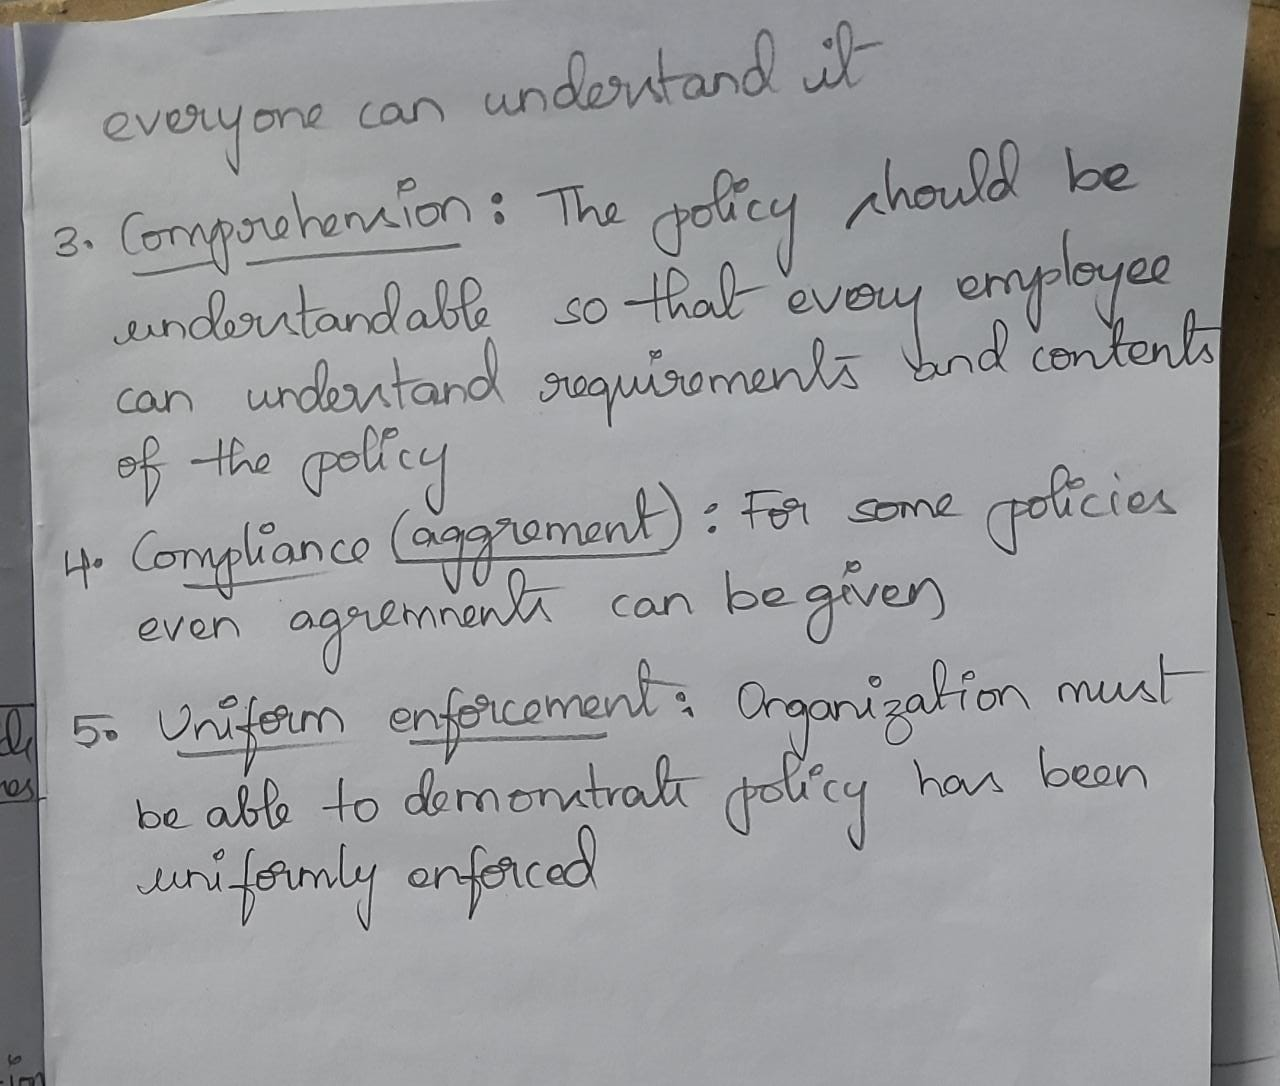 everyone can understand it
3. Comprehension : The policy should be
understandable so that every employee
can understand requirements and contents
of the policy
4. Compliance (aggrement) : For some policies
even agremnents can be given
5. Uniform enforcement : Organization must
be able to demonstrate policy has been
uniformly enforced